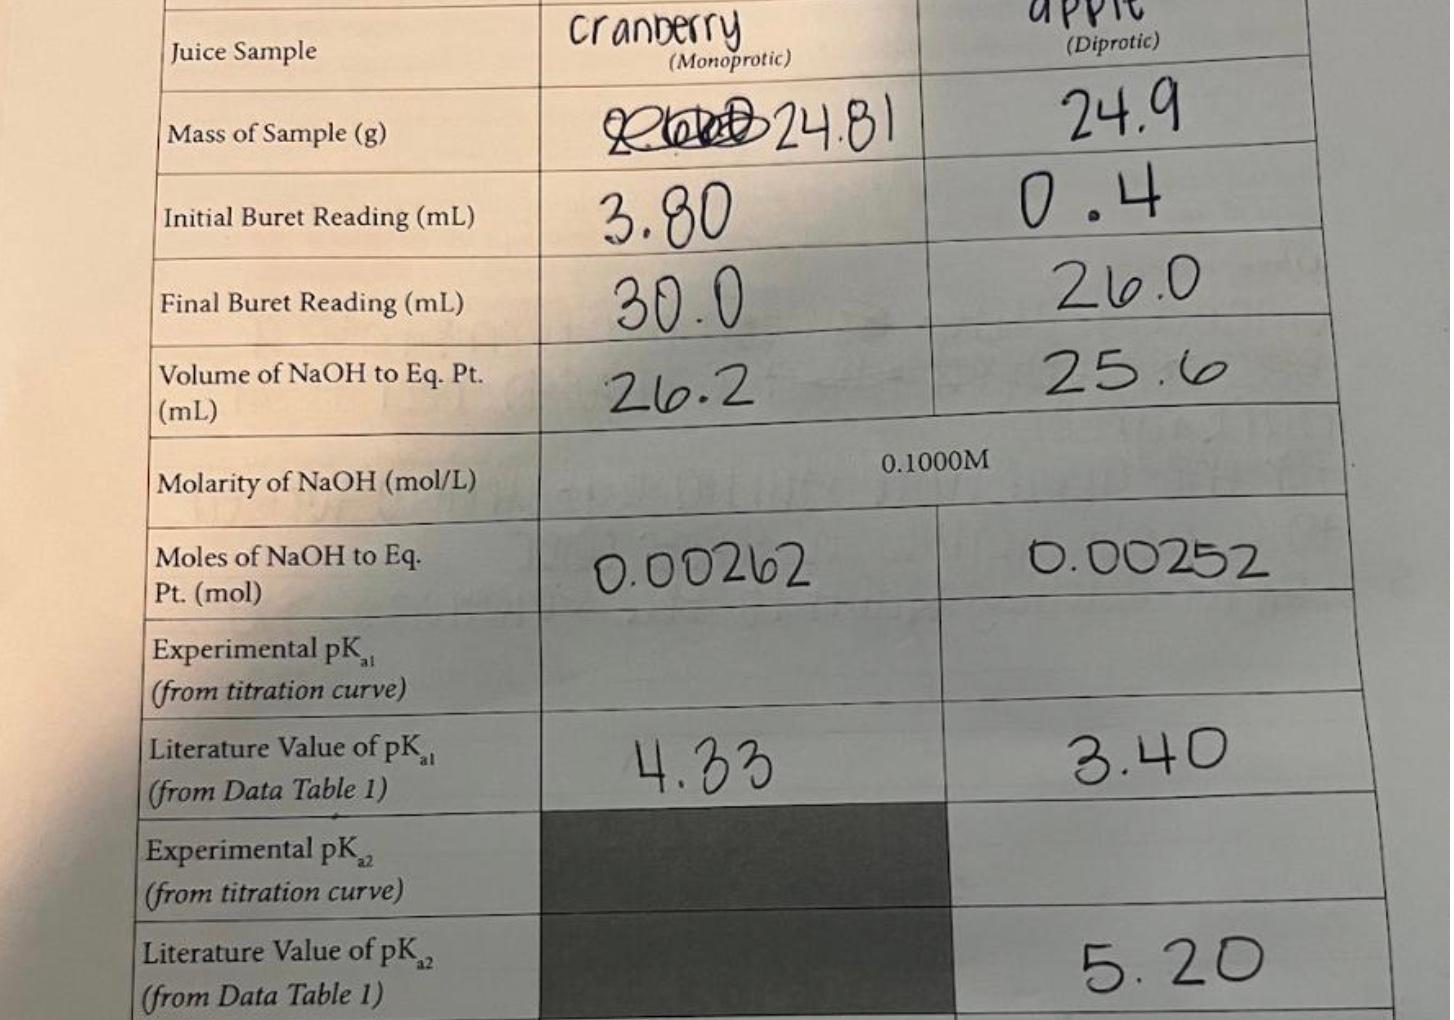 cranberry
apple
Juice Sample
(Monoprotic)
(Diprotic)
Mass of Sample (g)
24.81
24.9
Initial Buret Reading (mL)
3.80
0.4
Final Buret Reading (mL)
30.0
26.0
Volume of NaOH to Eq. Pt.
(mL)
26.2
25.6
Molarity of NaOH (mol/L)
0.1000M
Moles of NaOH to Eq.
Pt. (mol)
0.00262
0.00252
Experimental pKa1
(from titration curve)
Literature Value of pKa1
(from Data Table 1)
4.33
3.40
Experimental pKa2
(from titration curve)
Literature Value of pKa2
(from Data Table 1)
5.20